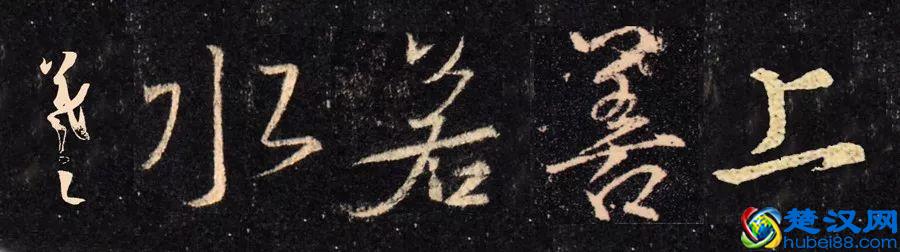 上善若水
羲之
楚汉网
hubei88.com